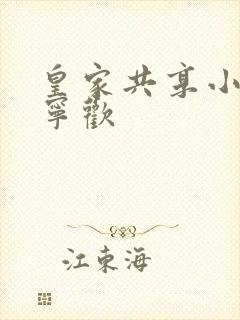 皇家共享小
寧歡
江東海